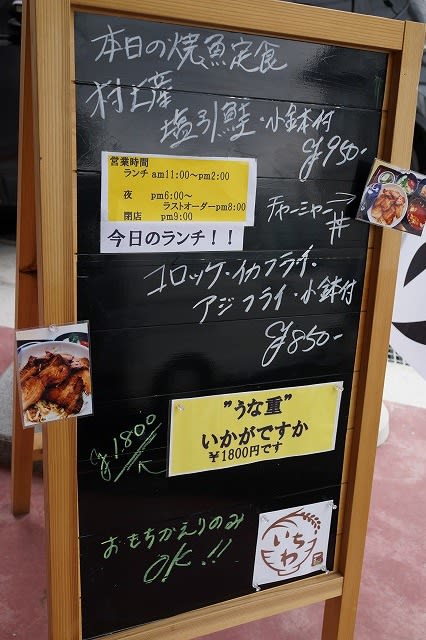 本日の焼魚定食
村上産
塩引鮭・小鉢付
¥950-
営業時間
ランチ am11:00～pm2:00
夜 pm6:00～
ラストオーダーpm8:00
閉店 pm9:00
今日のランチ！！
チャーシャー丼
コロッケ・イカフライ・
アジフライ・小鉢付
¥850-
¥1800
"うな重"
いかがですか
¥1800円です
おもちかえりのみ
OK!!
いちわ